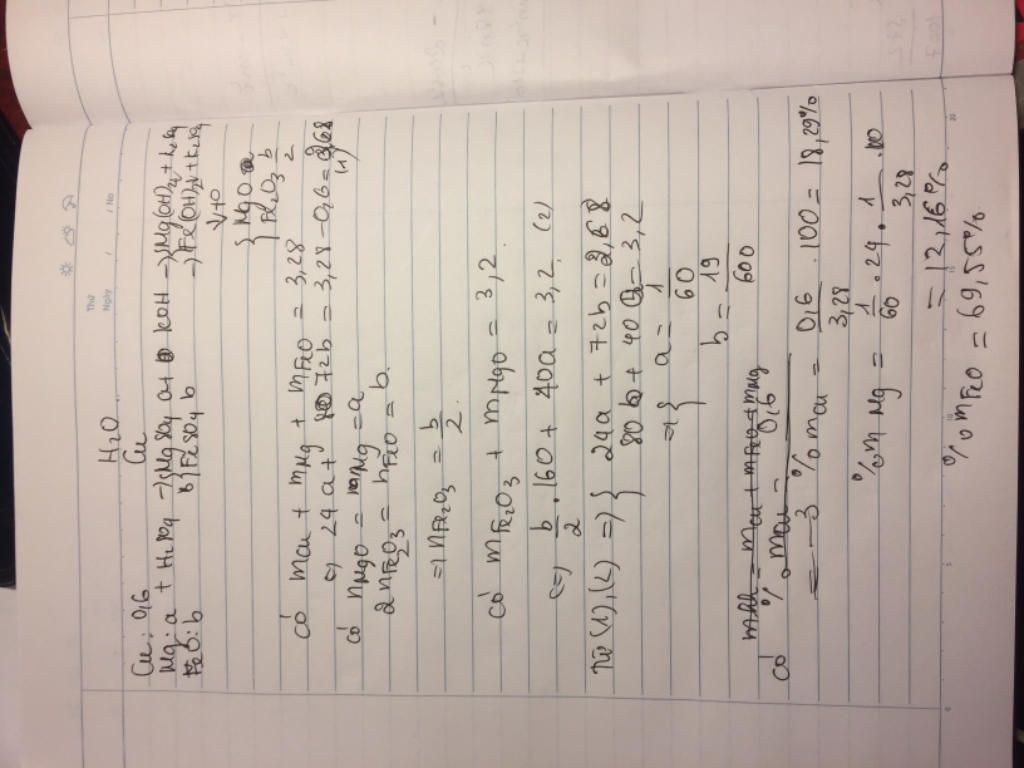 Thứ
Ngày / / No
H₂O
Cu: 0,6 Cu
Mg: a + H₂SO₄ → { MgSO₄ a + KOH → Mg(OH)₂↓ + K₂SO₄
FeO: b FeSO₄ b → Fe(OH)₂↓ + K₂SO₄
↓ to
{ MgO a
Fe₂O₃ b/2
Có mCu + mMg + mFeO = 3,28
⇔ 24a + 72b = 3,28 - 0,6 = 2,68 (1)
Có nMgO = nMg = a
2nFe₂O₃ = nFeO = b.
⇒ nFe₂O₃ = b/2
Có mFe₂O₃ + mMgO = 3,2.
⇔ b/2 . 160 + 40a = 3,2. (2)
Từ (1), (2) ⇒ { 24a + 72b = 2,68
80b + 40a = 3,2
⇒ { a = 1/60
b = 19/600
mhh = mCu + mFeO + mMg
Có % mCu = 0,6
⇒ % mCu = 0,6/3,28 . 100 = 18,29%
% mMg = 1/60 . 24 . 1/3,28 . 100
= 12,16%
% mFeO = 69,55%.